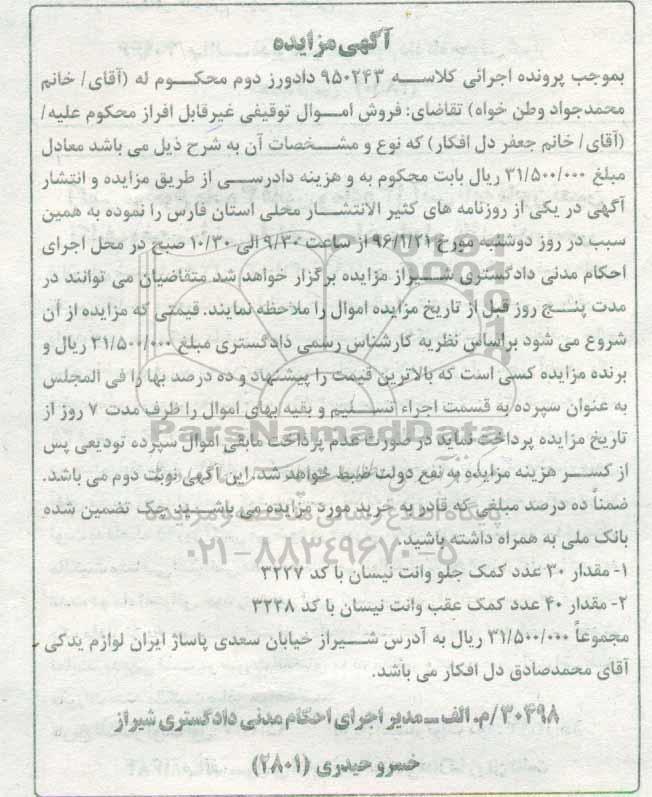 آگهی مزایده
بموجب پرونده اجرائی کلاسه ۹۵۰۲۴۳ دادورز دوم محکوم له (آقای/ خانم
محمدجواد وطن خواه) تقاضای: فروش اموال توقیفی غیرقابل افراز محکوم علیه/
(آقای/ خانم جعفر دل افکار) که نوع و مشخصات آن به شرح ذیل می باشد معادل
مبلغ ۳۱/۵۰۰/۰۰۰ ریال بابت محکوم به و هزینه دادرسی از طریق مزایده و انتشار
آگهی در یکی از روزنامه های کثیر الانتشار محلی استان فارس را نموده به همین
سبب در روز دوشنبه مورخ ۹۶/۱/۲۱ از ساعت ۹/۳۰ الی ۱۰/۳۰ صبح در محل اجرای
احکام مدنی دادگستری شیراز مزایده برگزار خواهد شد متقاضیان می توانند در
مدت پنج روز قبل از تاریخ مزایده اموال را ملاحظه نمایند. قیمتی که مزایده از آن
شروع می شود براساس نظریه کارشناس رسمی دادگستری مبلغ ۳۱/۵۰۰/۰۰۰ ریال و
برنده مزایده کسی است که بالاترین قیمت را پیشنهاد و ده درصد بها را فی المجلس
به عنوان سپرده به قسمت اجراء تسلیم و بقیه بهای اموال را ظرف مدت ۷ روز از
ParsNamadData
تاریخ مزایده پرداخت نماید در صورت عدم پرداخت مابقی اموال سپرده تودیعی پس
از کسر هزینه مزایده به نفع دولت ضبط خواهد شد. این آگهی نوبت دوم می باشد.
ضمناً ده درصد مبلغی که قادر به خرید مورد مزایده می باشید چک تضمین شده
پایگاه اطلاع رسانی مناقصه و مزایده
بانک ملی به همراه داشته باشید.
۰۲۱-۸۸۳۴۹۶۷۰-۵
۱- مقدار ۳۰ عدد کمک جلو وانت نیسان با کد ۳۲۲۷
۲- مقدار ۴۰ عدد کمک عقب وانت نیسان با کد ۳۲۳۸
مجموعاً ۳۱/۵۰۰/۰۰۰ ریال به آدرس شیراز خیابان سعدی پاساژ ایران لوازم یدکی
آقای محمدصادق دل افکار می باشد.
۳۰۴۹۸/م.الف ـ مدیر اجرای احکام مدنی دادگستری شیراز
خسرو حیدری (۲۸۰۱)